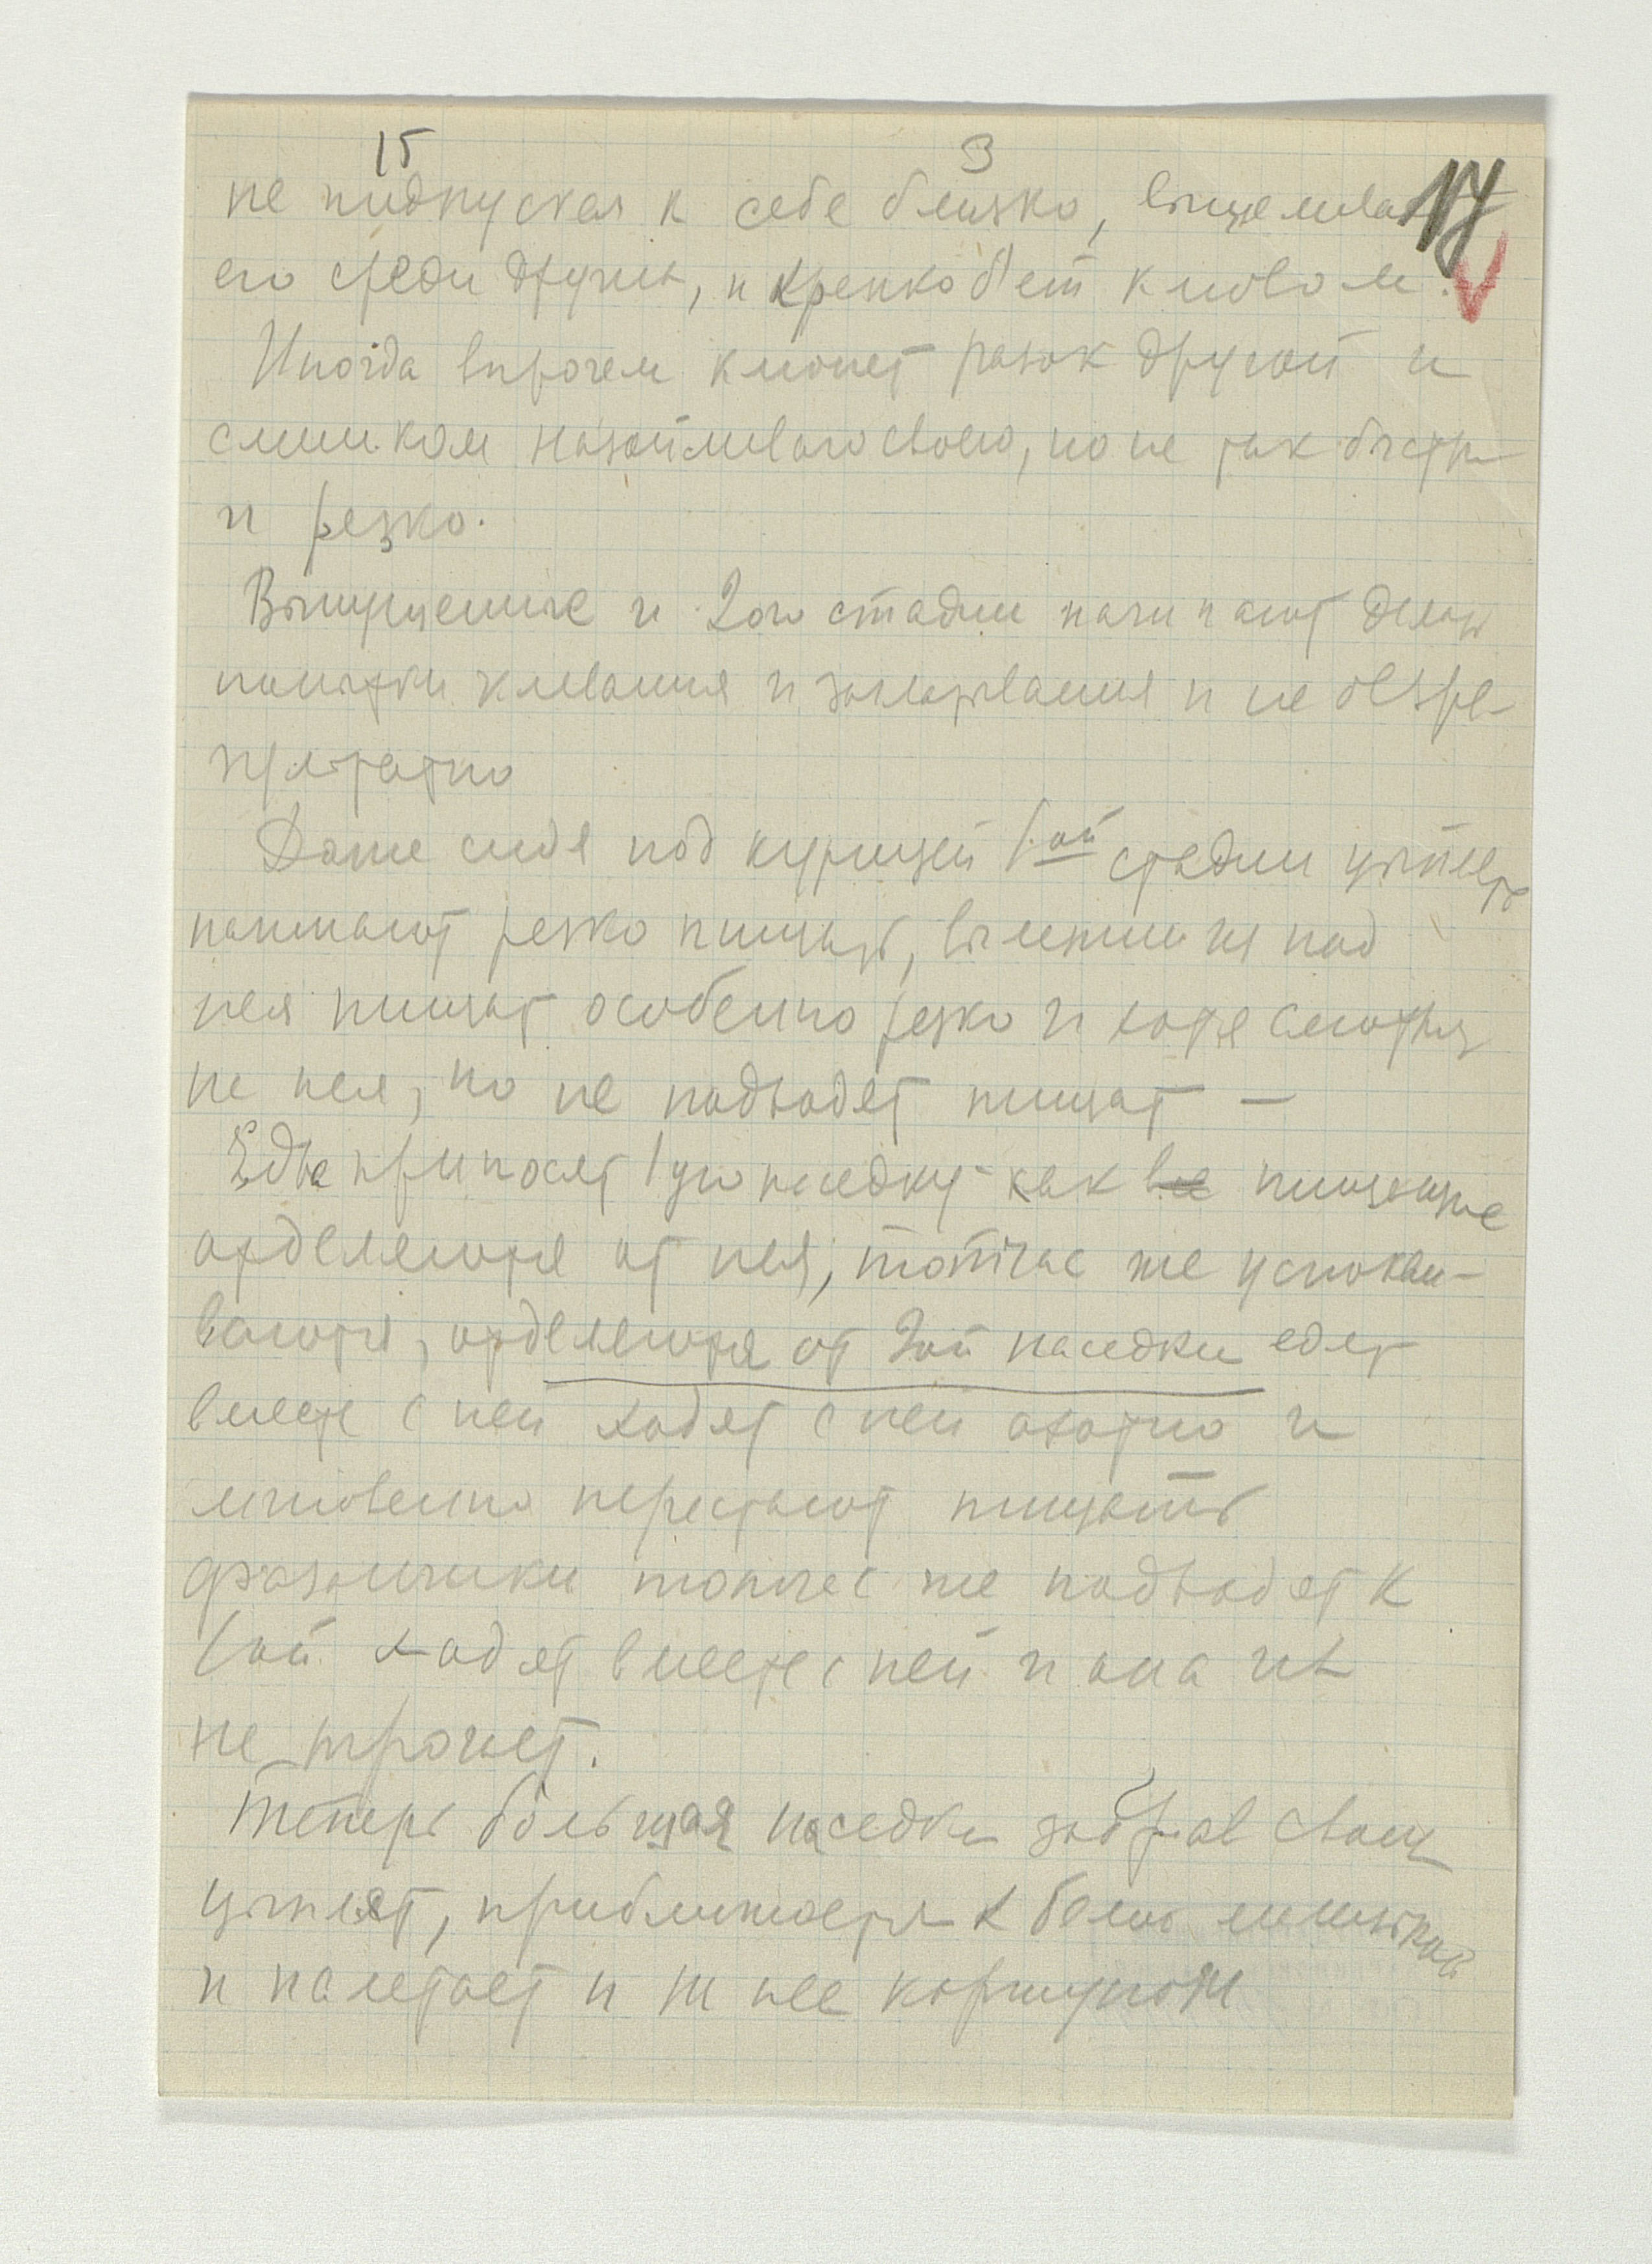 15 3 17
не подпуская к себе близко, выцеливает
его среди других, и крепко бьет клювом.
Иногда впрочем клюнет разок другой и
слишком назойливого своего, но не так быстро
и резко.
Выпущенные и 2ой стадии начинают делать
попытки клевания и заглатывания и не безре-
зультатно
Даже сидя под курицей 1ой стадии цыплята
начинают резко пищать, вылезши из под
нея пищат особенно резко и хотя смотрят
на нея, но не подходят пищат —
Едва приносят 1ую наседку как все пищащие
отделяются от нея, тотчас же успокаи-
ваются, отделяются от 2ой наседки едят
вместе с ней ходят с ней охотно и
мгновенно перестают пищать
фазанчики тотчас же подходят к
1ой ходят вместе с ней и она их
не трогает.
Теперь большая наседка забрав своих
цыплят, приближается к белой
и налетает и на нее коршуном